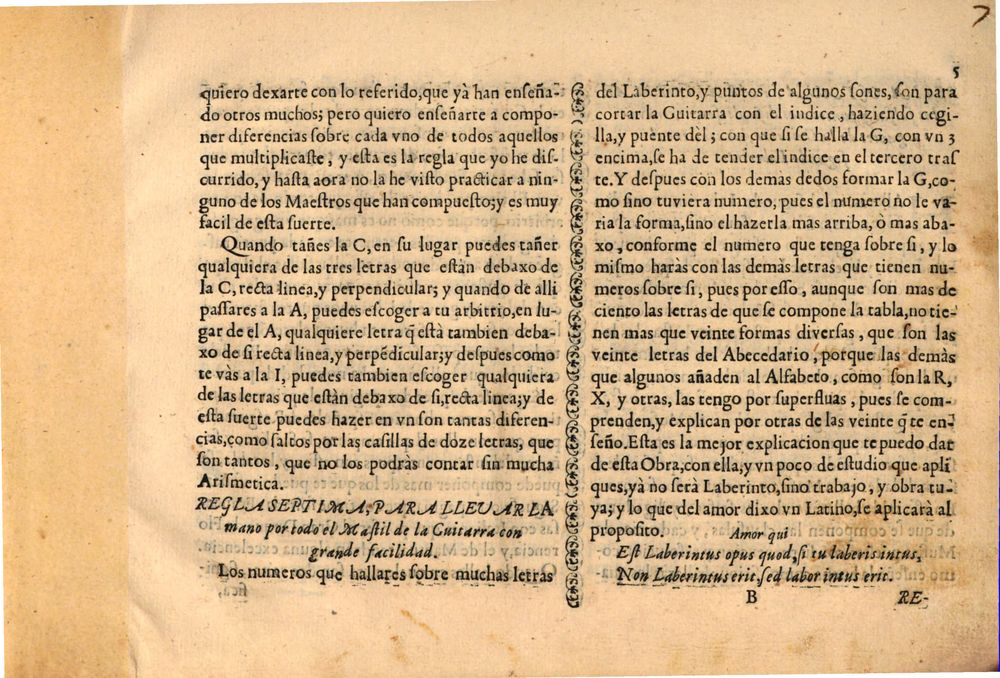 7
5
quiero dexarte con lo referido, que yà han enseña-
do otros muchos; pero quiero enseñarte a compo-
ner diferencias sobre cada vno de todos aquellos
que multiplicaste, y esta es la regla que yo he dis-
currido, y hasta aora no la he visto practicar a nin-
guno de los Maestros que han compuesto; y es muy
facil de esta suerte.
Quando tañes la C, en su lugar puedes tañer
qualquiera de las tres letras que estàn debaxo de
la C, recta linea, y perpendicular; y quando de alli
passares a la A, puedes escoger a tu arbitrio, en lu-
gar de el A, qualquiere letra q̃ està tambien deba-
xo de si recta linea, y perpẽdicular; y despues como
te vàs a la I, puedes tambien escoger qualquiera
de las letras que estàn debaxo de si, recta linea; y de
esta suerte puedes hazer en vn son tantas diferen-
cias, como saltos por las casillas de doze letras, que
son tantos, que no los podràs contar sin mucha
Arismetica.
REGLA SEPTIMA, PARA LLEVAR LA
mano por todo el Mastil de la Guitarra con
grande facilidad.
Los numeros que hallares sobre muchas letras
del Laberinto, y puntos de algunos sones, son para
cortar la Guitarra con el indice, haziendo cegi-
lla, y puente dèl; con que si se halla la G, con vn 3
encima, se ha de tender el indice en el tercero tras
te. Y despues con los demàs dedos formar la G, co-
mo sino tuviera numero, pues el numero no le va-
ria la forma, sino el hazerla mas arriba, ò mas aba-
xo, conforme el numero que tenga sobre si, y lo
mismo haràs con las demàs letras que tienen nu-
meros sobre si, pues por esso, aunque son mas de
ciento las letras de que se compone la tabla, no tie-
nen mas que veinte formas diversas, que son las
veinte letras del Abecedario, porque las demàs
que algunos añaden al Alfabeto, como son la R,
X, y otras, las tengo por superfluas, pues se com-
prenden, y explican por otras de las veinte q̃ te en-
seño. Esta es la mejor explicacion que te puedo dar
de esta Obra, con ella, y vn poco de estudio que apli
ques, yà no serà Laberinto, sino trabajo, y obra tu-
ya; y lo que del amor dixo vn Latino, se aplicarà al
proposito. Amor qui
Est Laberintus opus quod, si tu laberis intus,
Non Laberintus erit, sed labor intus erit.
B RE-